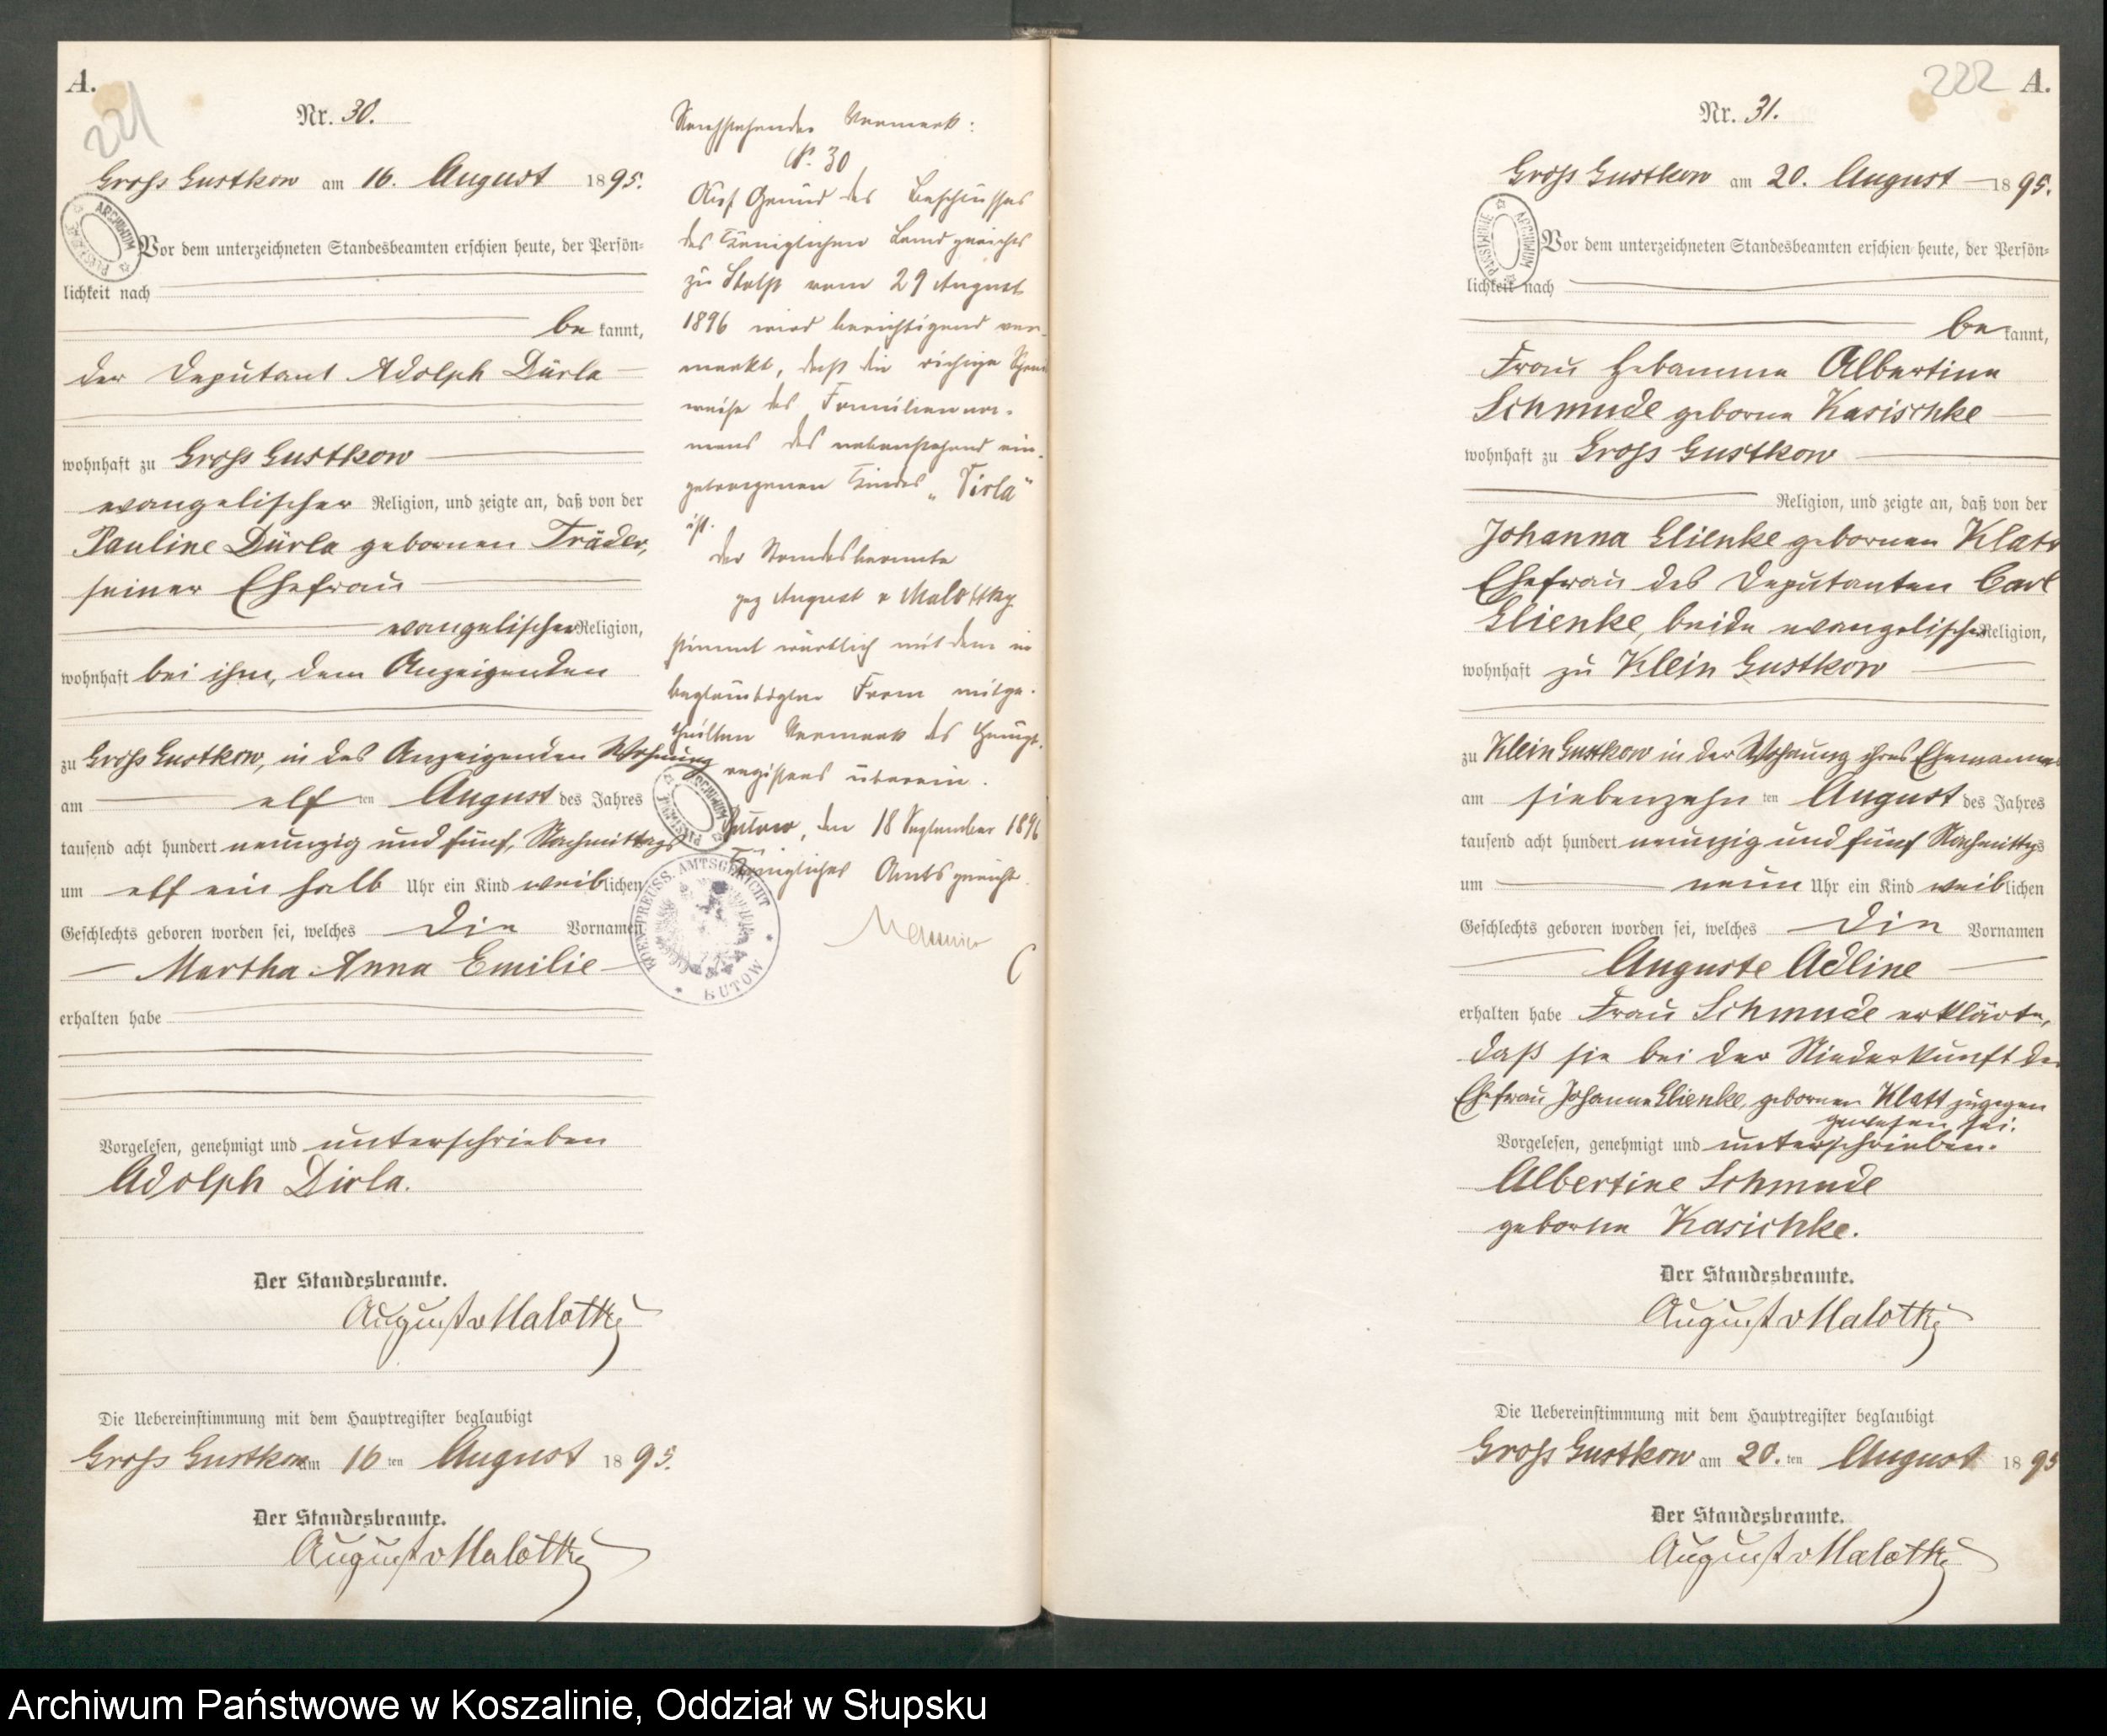 A.
221
Nr. 30.
Gross Gustkow am 16. August 1895.
Vor dem unterzeichneten Standesbeamten erschien heute, der Persön-
lichkeit nach
be kannt,
der Deputant Adolph Dürla
wohnhaft zu Gross Gustkow
evangelischer Religion, und zeigte an, daß von der
Pauline Dürla gebornen Träder,
seiner Ehefrau
evangelischer Religion,
wohnhaft bei ihm, dem Anzeigenden
zu Gross Gustkow, in des Anzeigenden Wohnung
am elf ten August des Jahres
tausend acht hundert neunzig und fünf, Nachmittags
um elf ein halb Uhr ein Kind weiblichen
Geschlechts geboren worden sei, welches die Vornamen
Martha Anna Emilie
erhalten habe
Vorgelesen, genehmigt und unterschrieben
Adolph Dirla.
Der Standesbeamte.
August v Malottky
Die Uebereinstimmung mit dem Hauptregister beglaubigt
Gross Gustkow am 16 ten August 1895.
Der Standesbeamte.
August v Malottky
Nachstehender Vermerk:
N. 30
Auf Grund des Beschlusses
des Königlichen Landgerichts
zu Stolp vom 29 August
1896 wird berichtigend ver-
merkt, daß die richtige Schreib
weise des Familienna-
mens des nebenstehend ein-
getragenen Kindes „Dirla“
ist.
Der Standesbeamte
gez August v Malottky
stimmt wörtlich mit dem in
beglaubigter Form mitge-
theilten Vermerk des Haupt-
registers überein.
Bütow, den 18 September 1896
Königliches Amtsgericht.
ARCHIWUM PAŃSTWOWE
KOEN. PREUSS. AMTSGERICHT
BUTOW
222 A.
Nr. 31.
Gross Gustkow am 20. August 1895.
Vor dem unterzeichneten Standesbeamten erschien heute, der Persön-
lichkeit nach
be kannt,
Frau Hebamme Albertine
Schmude geborne Kasischke
wohnhaft zu Gross Gustkow
Religion, und zeigte an, daß von der
Johanna Glienke gebornen Klatt
Ehefrau des Deputanten Carl
Glienke, beide evangelischer Religion,
wohnhaft zu Klein Gustkow
zu Klein Gustkow in der Wohnung ihres Ehemannes
am siebenzehn ten August des Jahres
tausend acht hundert neunzig und fünf Nachmittags
um neun Uhr ein Kind weiblichen
Geschlechts geboren worden sei, welches die Vornamen
Auguste Adline
erhalten habe Frau Schmude erklärte,
daß sie bei der Niederkunft der
Ehefrau Johanne Glienke, gebornen Klatt zugegen
gewesen sei.
Vorgelesen, genehmigt und unterschrieben.
Albertine Schmude
geborne Kasichke.
Der Standesbeamte.
August v Malottky
Die Uebereinstimmung mit dem Hauptregister beglaubigt
Gross Gustkow am 20. ten August 1895
Der Standesbeamte.
August v Malottky
ARCHIWUM PAŃSTWOWE
Archiwum Państwowe w Koszalinie, Oddział w Słupsku